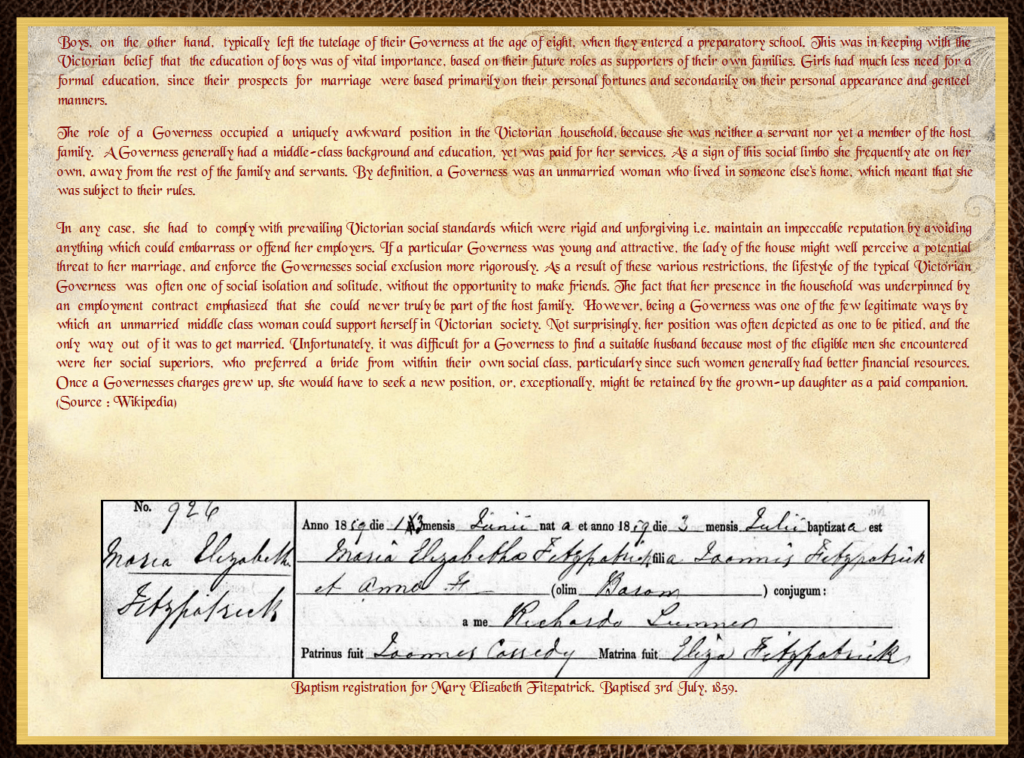 Boys, on the other hand, typically left the tutelage of their Governess at the age of eight, when they entered a preparatory school. This was in keeping with the
Victorian belief that the education of boys was of vital importance, based on their future roles as supporters of their own families. Girls had much less need for a
formal education, since their prospects for marriage were based primarily on their personal fortunes and secondarily on their personal appearance and genteel
manners.
The role of a Governess occupied a uniquely awkward position in the Victorian household, because she was neither a servant nor yet a member of the host
family. A Governess generally had a middle-class background and education, yet was paid for her services. As a sign of this social limbo she frequently ate on her
own, away from the rest of the family and servants. By definition, a Governess was an unmarried woman who lived in someone else's home, which meant that she
was subject to their rules.
In any case, she had to comply with prevailing Victorian social standards which were rigid and unforgiving i.e. maintain an impeccable reputation by avoiding
anything which could embarrass or offend her employers. If a particular Governess was young and attractive, the lady of the house might well perceive a potential
threat to her marriage, and enforce the Governesses social exclusion more rigorously. As a result of these various restrictions, the lifestyle of the typical Victorian
Governess was often one of social isolation and solitude, without the opportunity to make friends. The fact that her presence in the household was underpinned by
an employment contract emphasized that she could never truly be part of the host family. However, being a Governess was one of the few legitimate ways by
which an unmarried middle class woman could support herself in Victorian society. Not surprisingly, her position was often depicted as one to be pitied, and the
only way out of it was to get married. Unfortunately, it was difficult for a Governess to find a suitable husband because most of the eligible men she encountered
were her social superiors, who preferred a bride from within their own social class, particularly since such women generally had better financial resources.
Once a Governesses charges grew up, she would have to seek a new position, or, exceptionally, might be retained by the grown-up daughter as a paid companion.
(Source : Wikipedia)
No. 926
Maria Elizabeth
Fitzpatrick
Anno 1859 die 13 mensis Junii nat a et anno 1859 die 3 mensis Julii baptizata est
Maria Elizabetha Fitzpatrick filia Joannis Fitzpatrick
et Anna F (olim Baron ) conjugum :
a me Richardo Sumner
Patrinus fuit Joannes Cassedy Matrina fuit Eliza Fitzpatrick
Baptism registration for Mary Elizabeth Fitzpatrick. Baptised 3rd July, 1859.